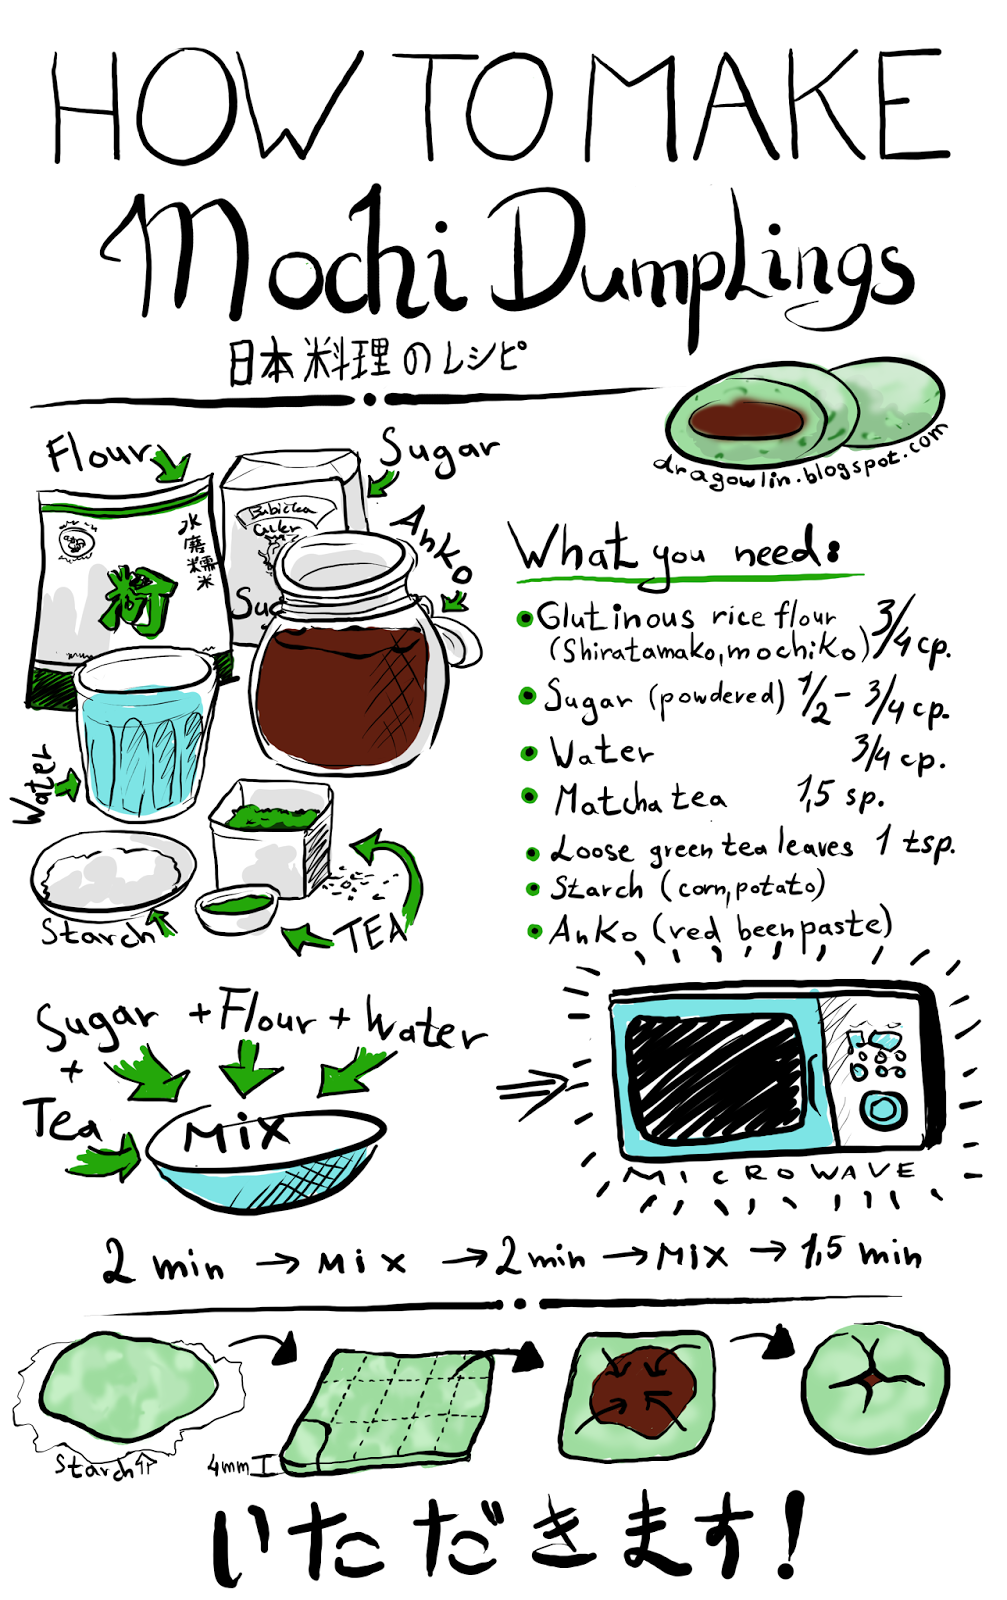 HOW TO MAKE
Mochi Dumplings
日本料理のレシピ
dragowlin.blogspot.com
Flour
Sugar
Anko
水磨糯米
粉
Water
Starch
TEA
What you need:
Glutinous rice flour 3/4 cp.
(Shiratamako, mochiko)
Sugar (powdered) 1/2 - 3/4 cp.
Water 3/4 cp.
Matcha tea 1,5 sp.
Loose green tea leaves 1 tsp.
Starch (corn, potato)
Anko (red been paste)
Sugar + Flour + Water
+
Tea
Mix
MICROWAVE
2 min → Mix → 2 min → Mix → 1,5 min
Starch
4mm
いただきます!